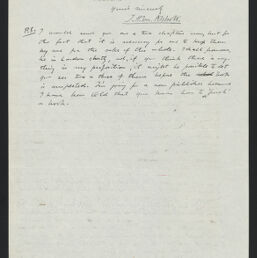 Yours sincerely
P.S. I would send you one or two chapters now, but for
the fact that it is necessary for me to keep them
by me for the sake of the whole. I shall however,
be in London shortly, and, if you think there is any-
thing in my proposition, it might be possible to let
you see two or three of them before the book
is complete. I'm going for a new publisher because
I have been told that you know how to "push"
a book.